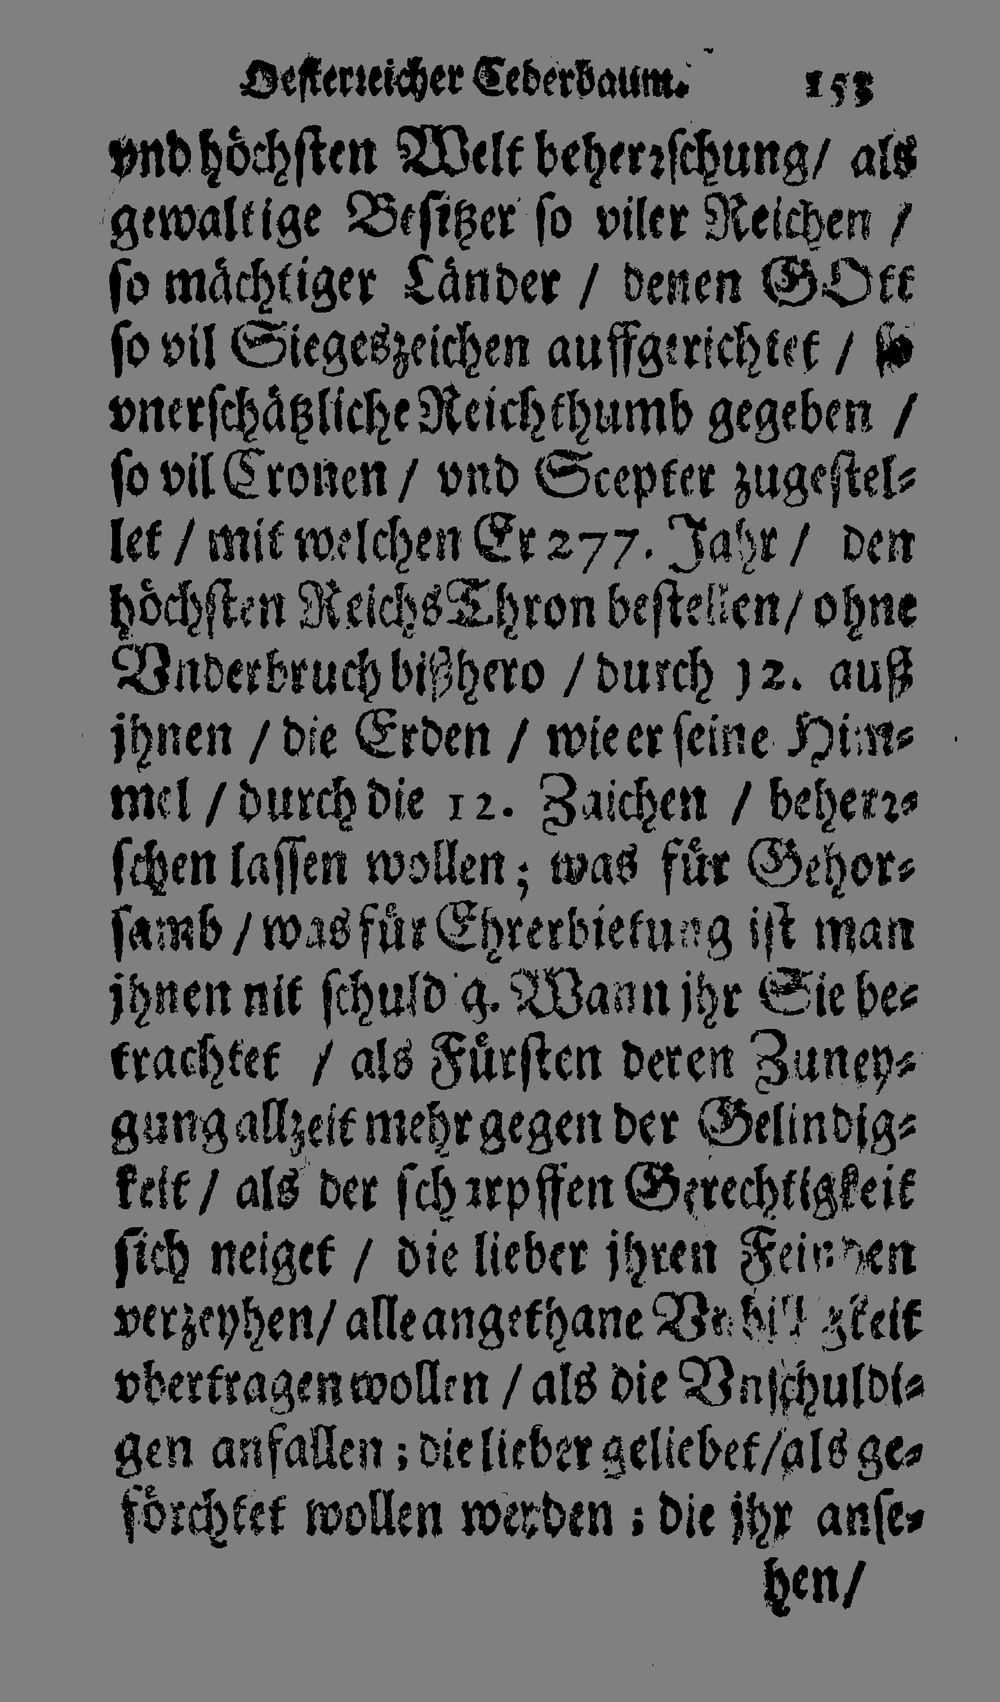 Oesterreicher Cederbaum. 153
vnd höchsten Welt beherꝛschung/ als
gewaltige Besitzer so viler Reichen /
so mächtiger Länder / denen GOtt
so vil Siegeszeichen auffgerichtet / so
vnerschätzliche Reichthumb gegeben /
so vil Cronen / vnd Scepter zugestel-
let / mit welchen Er 277. Jahr / den
höchsten Reichs Thron bestellen/ ohne
Vnderbruch bißhero / durch 12. auß
jhnen / die Erden / wie er seine Him-
mel / durch die 12. Zaichen / beherꝛ-
schen lassen wollen; was für Gehor-
samb / was für Ehrerbietung ist man
jhnen nit schuldig. Wann jhr Sie be-
trachtet / als Fürsten deren Zuney-
gung allzeit mehr gegen der Gelindig-
keit / als der scharpffen Gerechtigkeit
sich neiget / die lieber jhren Feinden
verzeyhen/ alle angethane Vnbilligkeit
vbertragen wollen / als die Vnschuldi-
gen anfallen ; die lieber geliebet/als ge-
förchtet wollen werden ; die jhr anse-
hen/